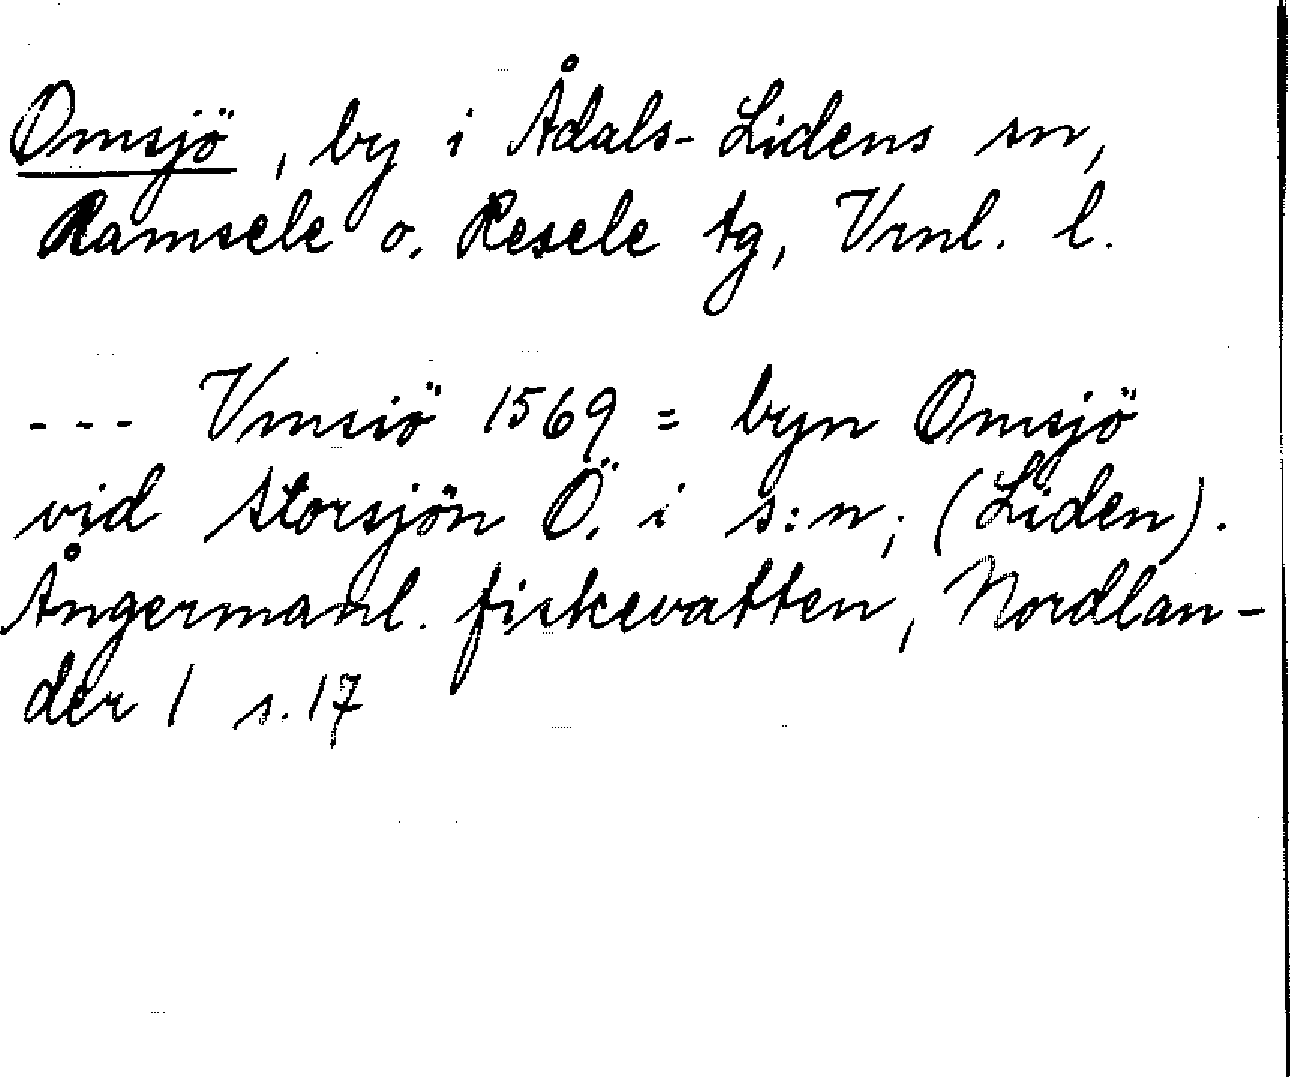 Omsjö, by i Ådals-Lidens sn,
Ramsele o. Resele tg, Vrnl. l.
--- Vmsiö 1569 = byn Omsjö
vid Storsjön Ö. i s:n; (Liden).
Ångermanl. fiskevatten, Nordlan-
der 1 s. 17